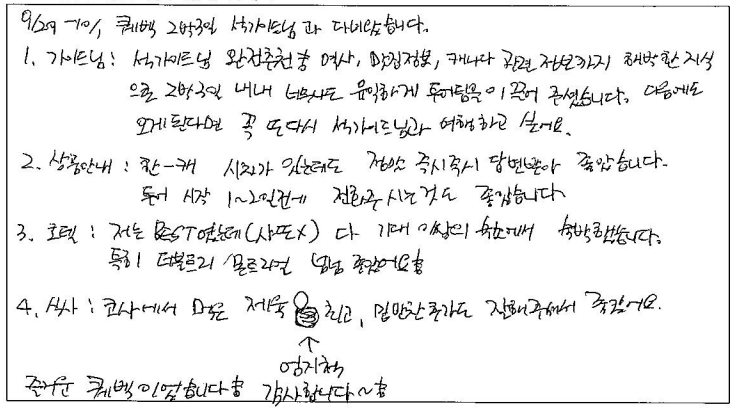 9/29 - 10/1 퀘벡 2박3일 석가이드님과 다녀왔습니다.
1. 가이드님 : 석가이드님 완전추천홍 역사, 맛집정보, 캐나다 관련 정보까지 해박한 지식
으로 2박3일 내내 너무나도 유익하게 투어팀을 이끌어 주셨습니다. 다음에도
오게된다면 꼭 또다시 석가이드님과 여행하고 싶어요.
2. 상품안내 : 한-캐 시차가 있는데도 즉시즉시 답변받아 좋았습니다.
투어 시작 1~2일전에 전화주시는것도 좋았습니다
3. 호텔 : 저는 BEST였는데(샤또X) 다 기대 이상의 숙소에서 숙박했습니다.
특히 더블트리 몬트리얼 넘넘 좋았어요홍
4. 식사 : 코사에서 먹은 제육 최고, 밑반찬추가도 잘해주셔서 좋았어요.
↑
엄지척
즐거운 퀘벡이었습니다홍 감사합니다~홍